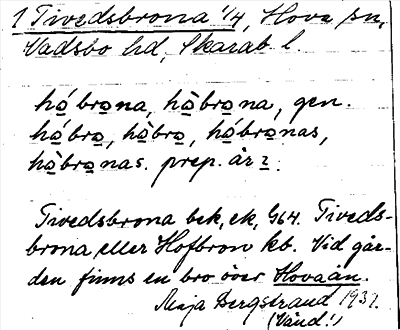 1 Tivedsbrona 1/4, Hova sn,
Vadsbo hd, Skarab l.
hó̲bro̲na, hò̲bro̲na, gen.
hó̲bro̲, hò̲bro̲, hó̲bro̲nas,
hò̲bro̲nas. prep. år̲
Tivedsbrona bek, ek, G64. Tiveds-
brona eller Hofbron kb. Vid går-
den finns en bro över Hovaån.
Maja Bergstrand 1937.
(Vänd!)